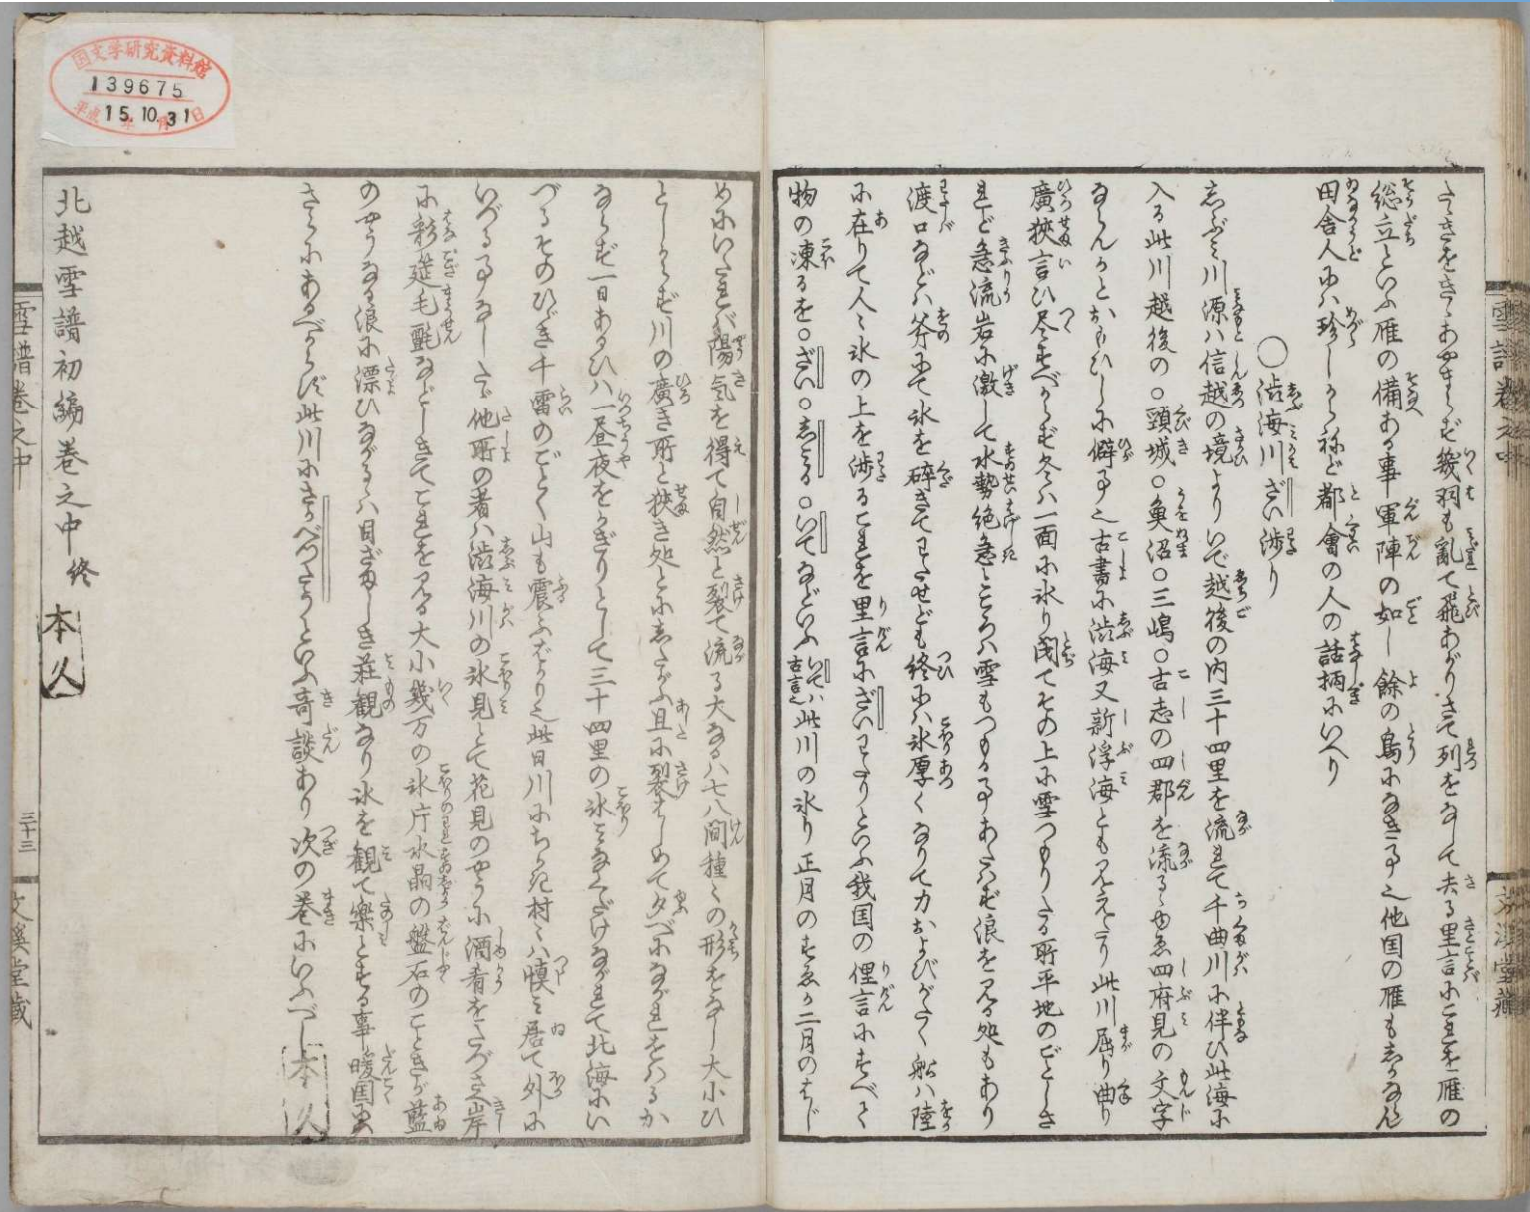 たゝきをきゝあやまらず幾羽も乱て飛あがりさて列をなして去る里言にこれを雁の
総立といふ雁の備ある事軍陣の如し餘の鳥になき事也他国の雁もしかなんらん
田舎人には珍しからねど都會の人の話柄にいへり
○渋海川ざい渉り
しぶみ川源は信越の境よりいで越後の内三十四里を流れて千曲川に伴ひ此海に
入る此川越後の○頸城○魚沼○三嶋○古志の四郡を流るゝゆゑ四府見の文字
ならんかとおもひしに僻事也古書に渋海又新浮海とも見えたり此川屈り曲り
廣狹言ひ尽すべからず冬は一面に氷り閉てその上に雪つもりたる所平地のごとしさ
れど急流岩に激して水勢絶急ところは雪もつもる事あたはず浪を見る処もあり
渡口などは斧にて氷を砕きてわたせども終には氷厚くなりて力およびがたく船は陸
に在りて人々氷の上を渉るこれを里言にざいわたりといふ我国の俚言にすべて
物の凍るを○ざい○しみる○いてなどいふ いては古言也 此川の氷り正月のすゑか二月のはじ
めにいたれば陽気を得て自然と裂て流る大なるハ七八間種々の形をなし大小ひ
としからず川の廣き所と狹き処とにしたがふ且に裂はじめて夕べにながれをはるか
ならず一日あるひハ一昼夜をかぎりとして三十四里の氷こゞなくだけながれて北海にい
づるそのひゞき千雷のごとく山も震ふばかり也此日川にちかき村々ハ慎み居て外に
いづる事なしたゞ他所の者ハ渋海川の氷見とて花見のやうに酒肴をたづさえ岸
に彩莚毛氈などしきてこれを見る大小幾万の氷片水晶の盤石のごときが藍
のやうなる浪に漂ひながるゝハ目ざましき荘観なり氷を観て楽とする事暖国に
さらにあるべからず此川にさかべつたうといふ奇談あり次の巻にいふべし
本久
北越雪譜初編巻之中終
本久
雪譜巻之中
三十三
文溪堂蔵
国文学研究資料館
139675
平成15.10.31日